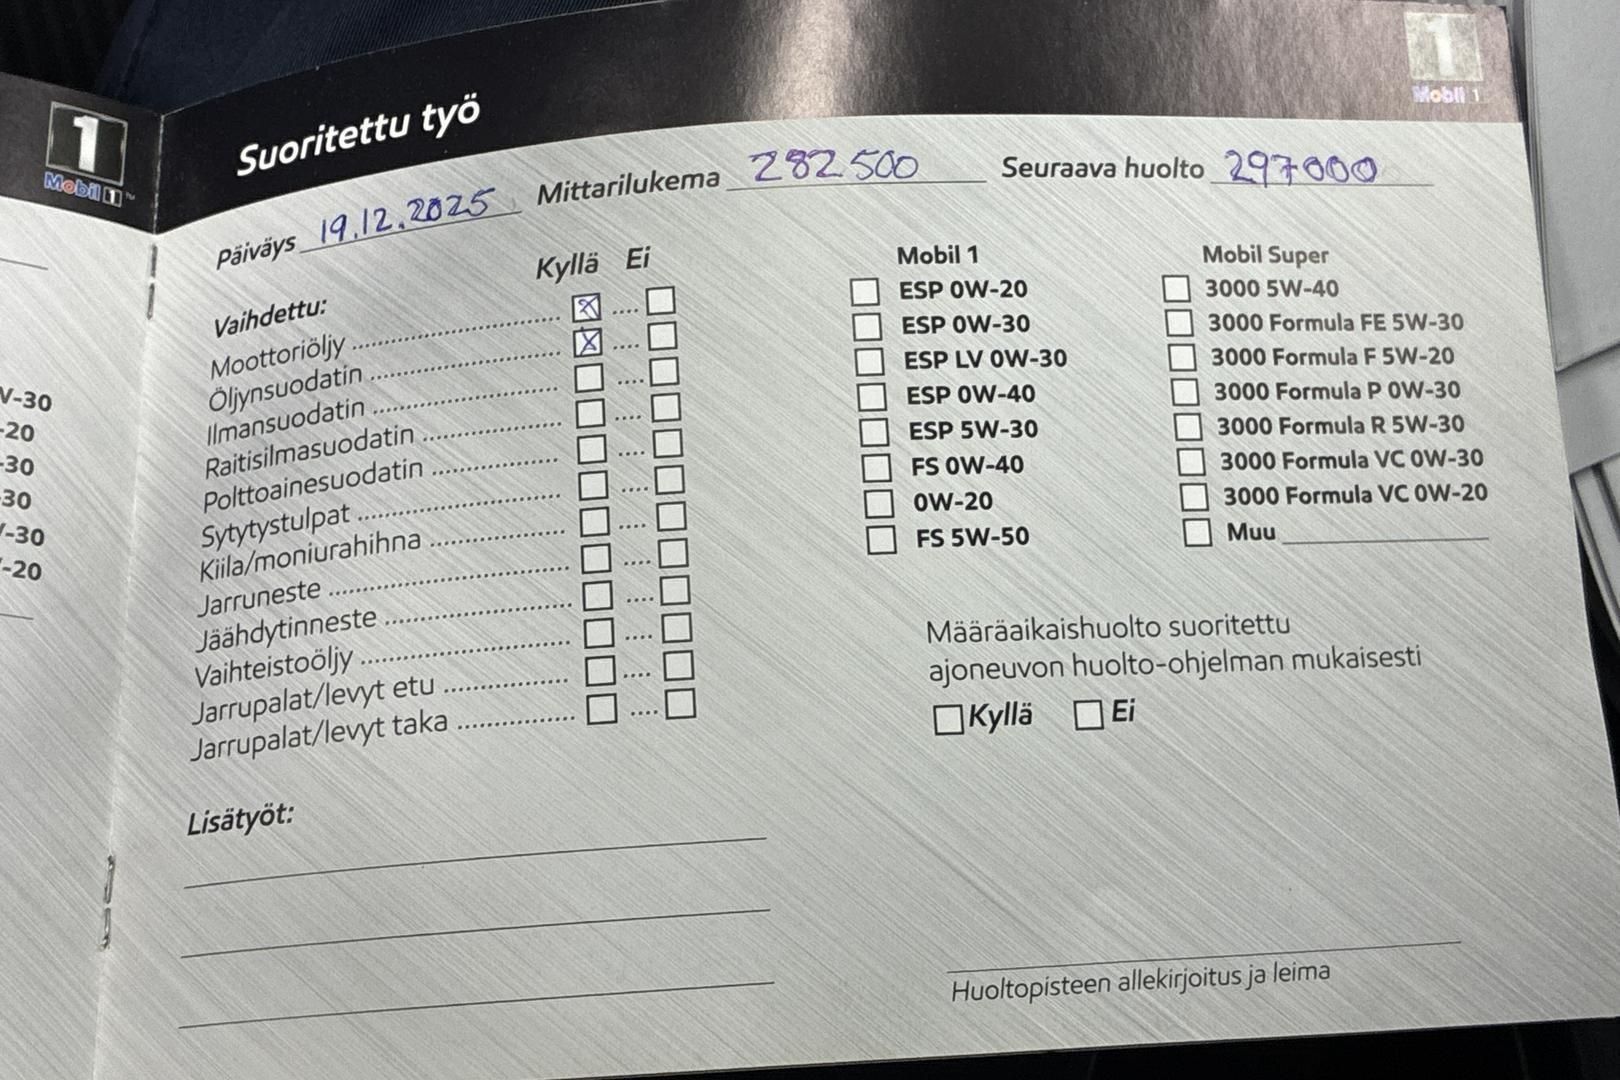 1
Mobil 1™
V-30
-20
-30
-30
-30
-20
1
Mobil 1
Suoritettu työ
Päiväys 19.12.2025 Mittarilukema 282 500 Seuraava huolto 297000
Kyllä Ei
Vaihdettu:
Moottoriöljy
Öljynsuodatin
Ilmansuodatin
Raitisilmasuodatin
Polttoainesuodatin
Sytytystulpat
Kiila/moniurahihna
Jarruneste
Jäähdytinneste
Vaihteistoöljy
Jarrupalat/levyt etu
Jarrupalat/levyt taka
Lisätyöt:
Mobil 1
ESP 0W-20
ESP 0W-30
ESP LV 0W-30
ESP 0W-40
ESP 5W-30
FS 0W-40
0W-20
FS 5W-50
Mobil Super
3000 5W-40
3000 Formula FE 5W-30
3000 Formula F 5W-20
3000 Formula P 0W-30
3000 Formula R 5W-30
3000 Formula VC 0W-30
3000 Formula VC 0W-20
Muu
Määräaikaishuolto suoritettu
ajoneuvon huolto-ohjelman mukaisesti
Kyllä Ei
Huoltopisteen allekirjoitus ja leima